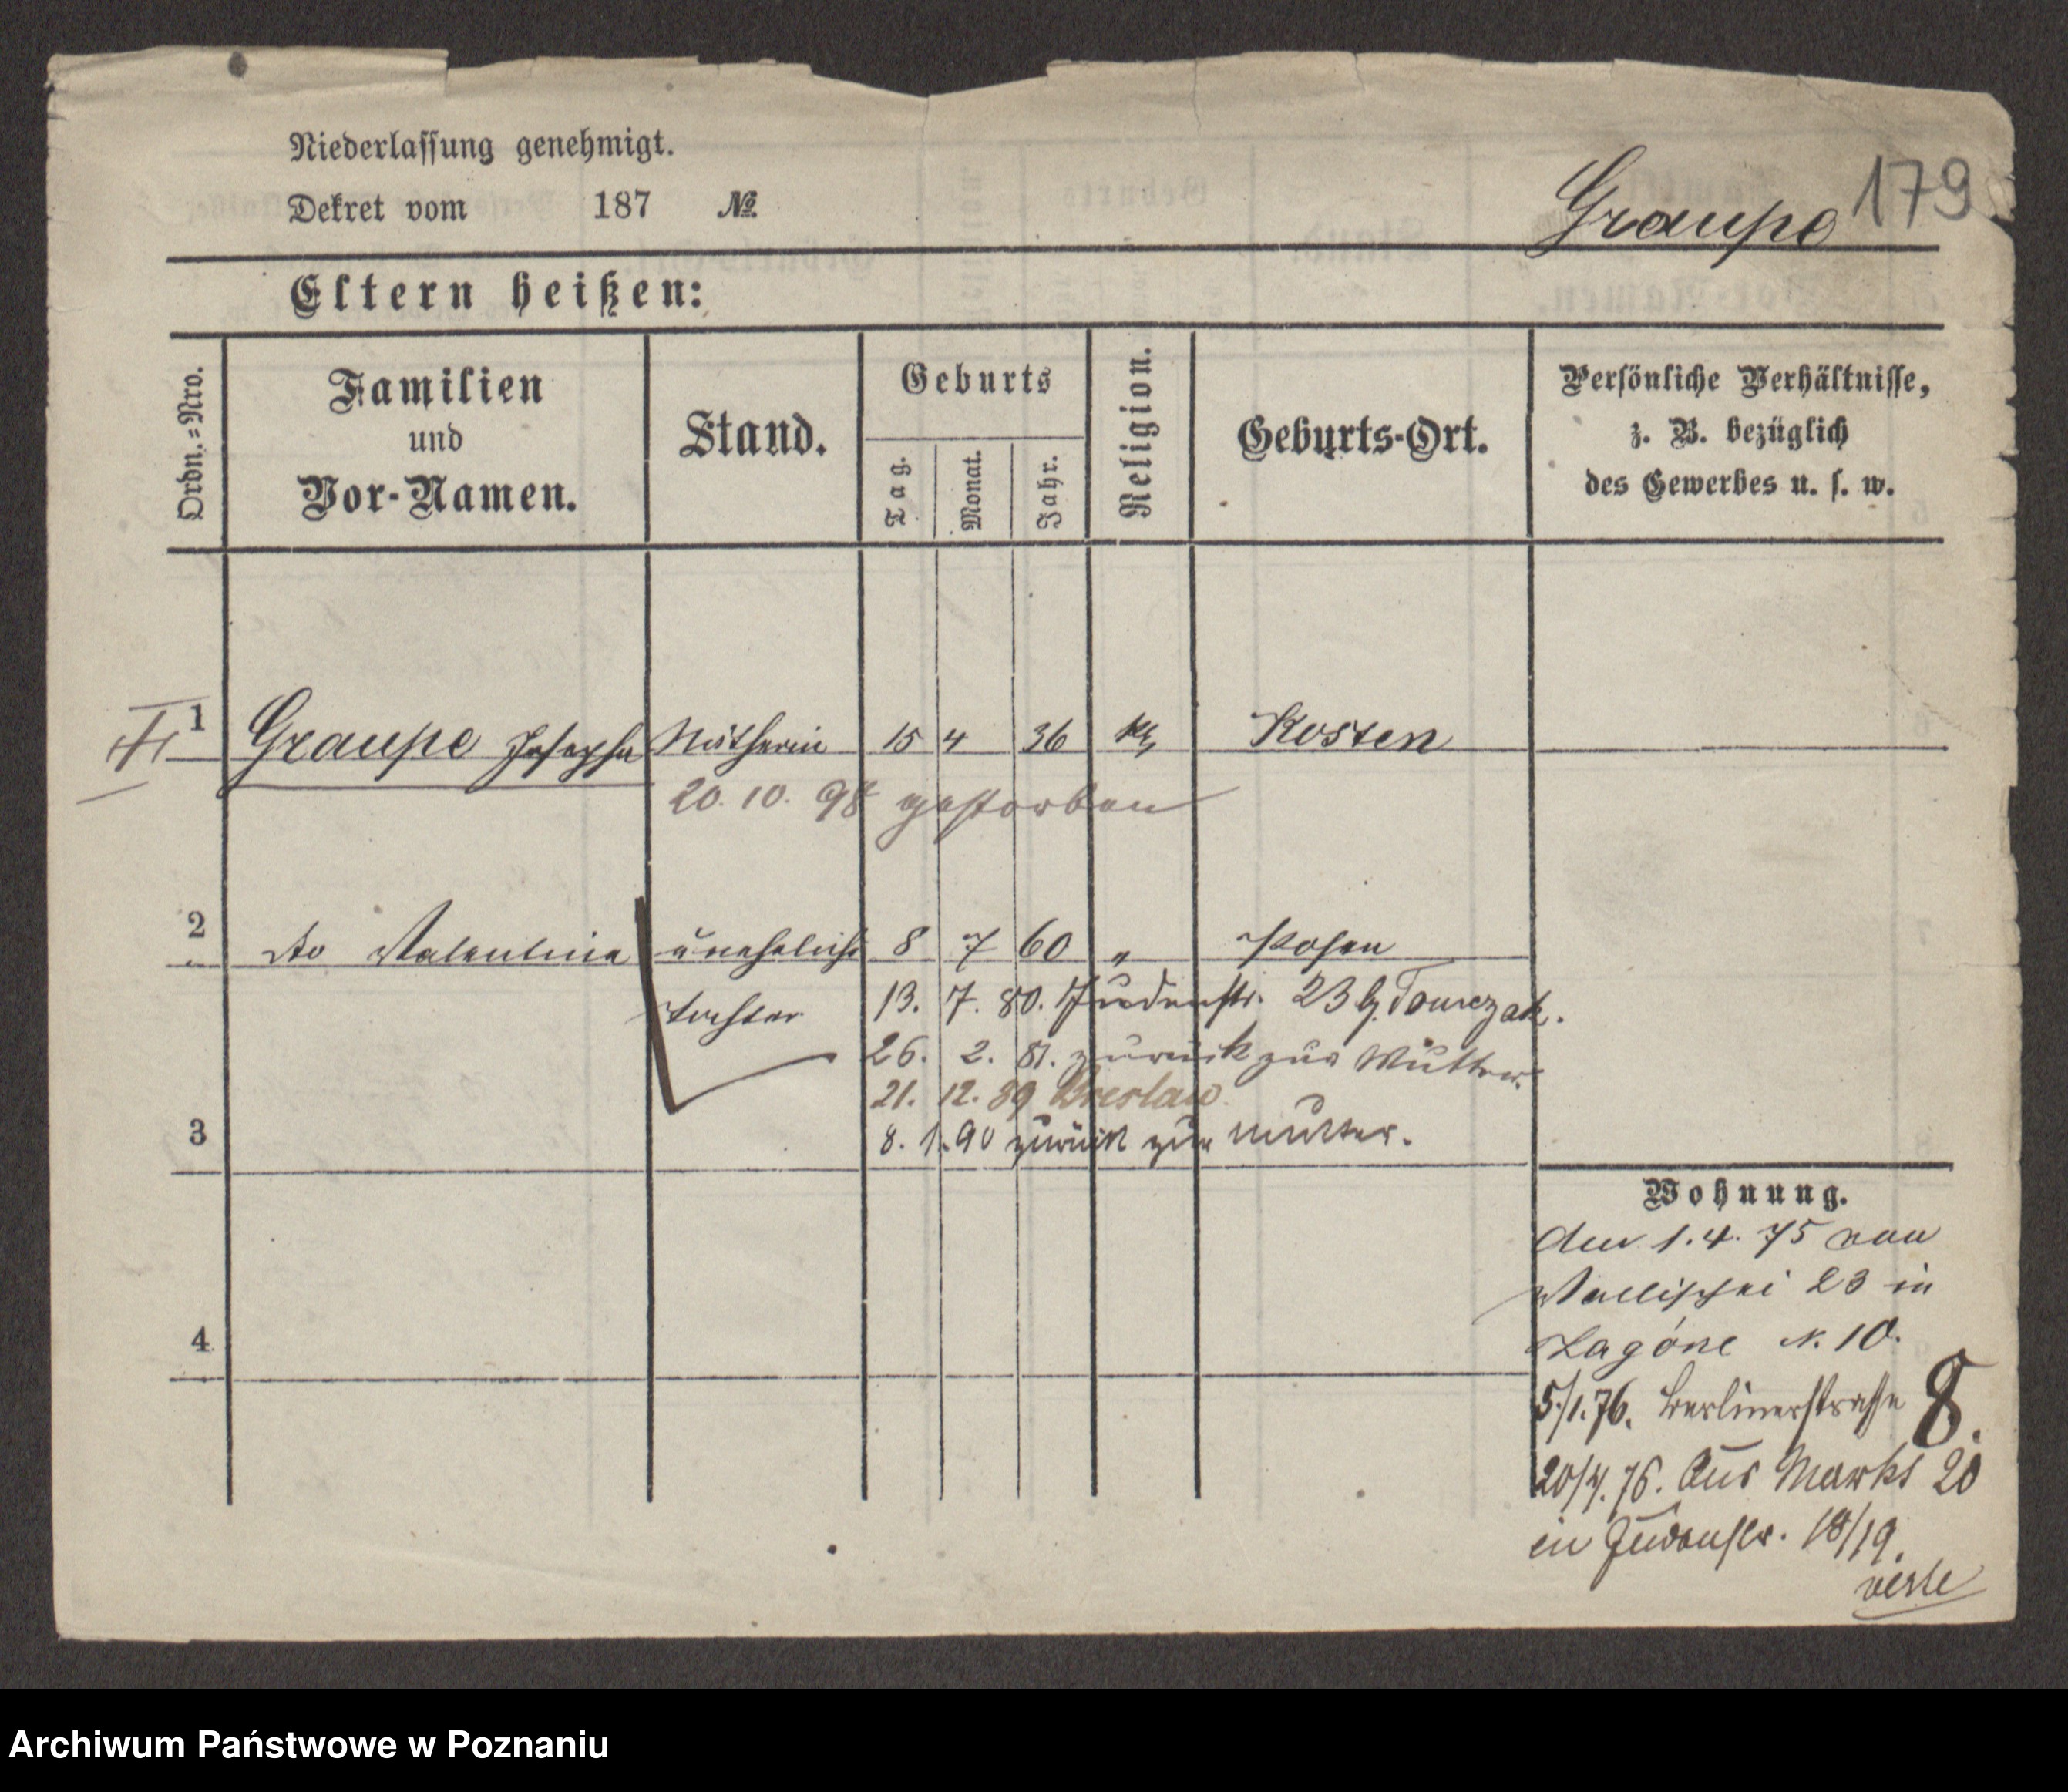 Niederlassung genehmigt.
Dekret vom 187 No.
Graupe 179
Eltern heißen:
Ordn.=Nro.
Familien
und
Vor-Namen.
Stand.
Geburts
Tag.
Monat.
Jahr.
Religion.
Geburts-Ort.
Persönliche Verhältnisse,
z. B. bezüglich
des Gewerbes u. s. w.
1 Graupe Josepha Nätherin 15 4 36 Kosten
20. 10. 98 gestorben
2 do Valentine uneheliche 8 7 60 „ Posen
Tochter 13. 7. 80. Judenstr. 23 b. Tomczak.
26. 2. 81. zurück zur Mutter.
21. 12. 89 Breslau
3 8. 1. 90 zurück zur Mutter.
4
Wohnung.
Am 1. 4. 75 von
Wallischei 23 in
Zagórze N. 10.
5/1. 76. Berlinerstrasse 8.
20/4. 76. Aus Markt 20
in Judenstr. 18/19.
Archiwum Państwowe w Poznaniu